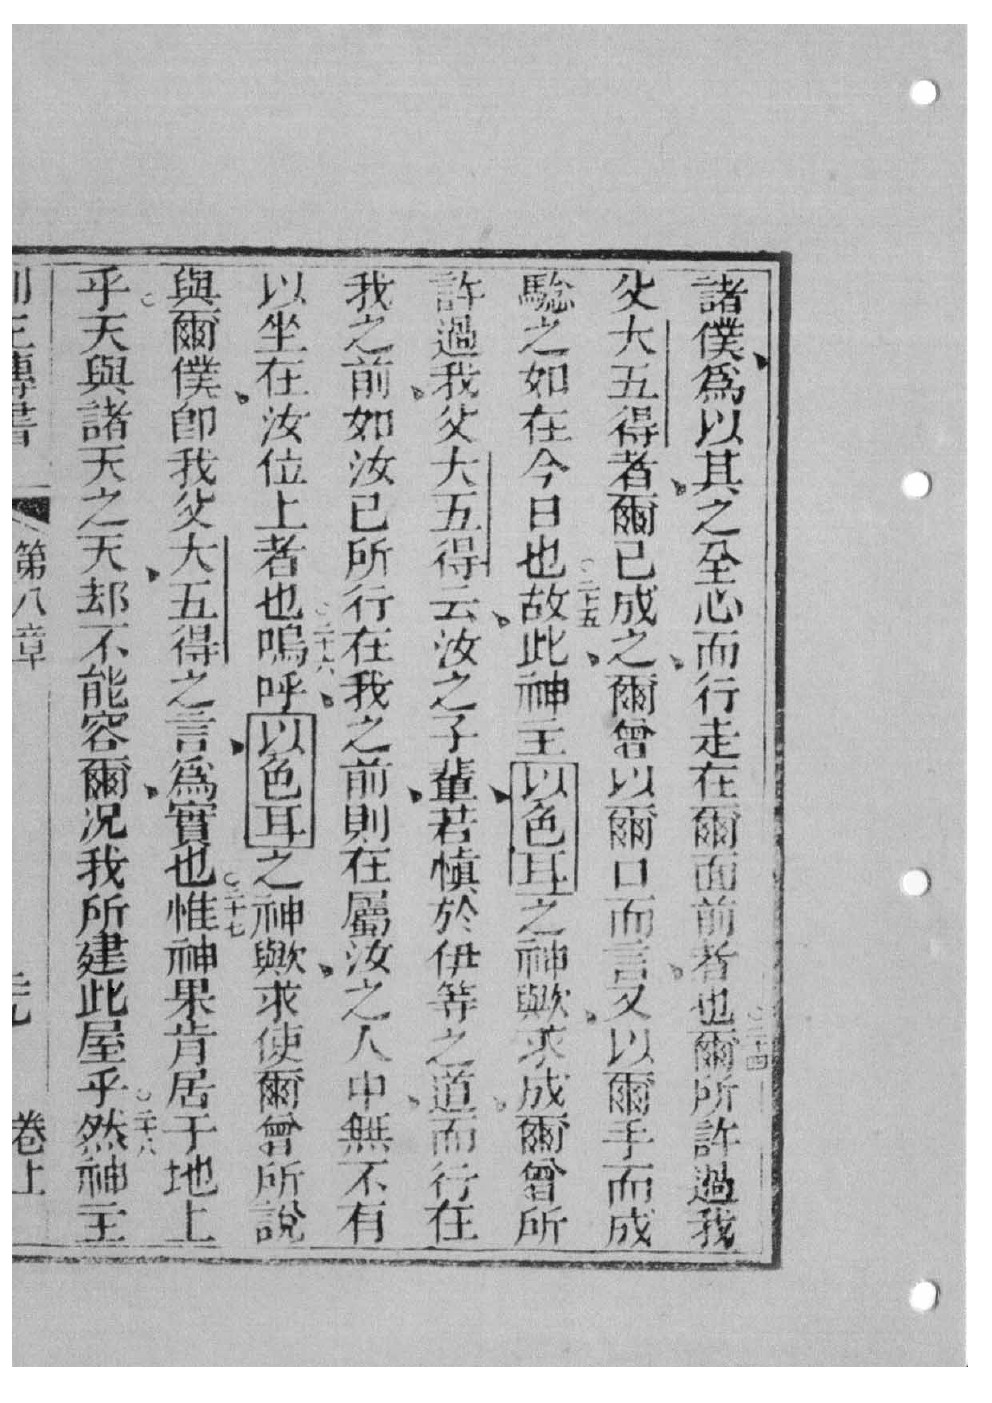 諸僕爲以其之全心而行走在爾面前者也○二十四爾所許過我
父大五得者爾已成之爾曾以爾口而言又以爾手而成
騐之如在今日也○二十五故此神主以色耳之神歟求成爾曾所
許過我父大五得云汝之子輩若愼於伊等之道而行在
我之前如汝已所行在我之前則在屬汝之人中無不有
以坐在汝位上者也○二十六嗚呼以色耳之神歟求使爾曾所說
與爾僕卽我父大五得之言爲實也○二十七惟神果肯居于地上
乎○天與諸天之天却不能容爾况我所建此屋乎○二十八然神主
列王傳書 第八章 卷上